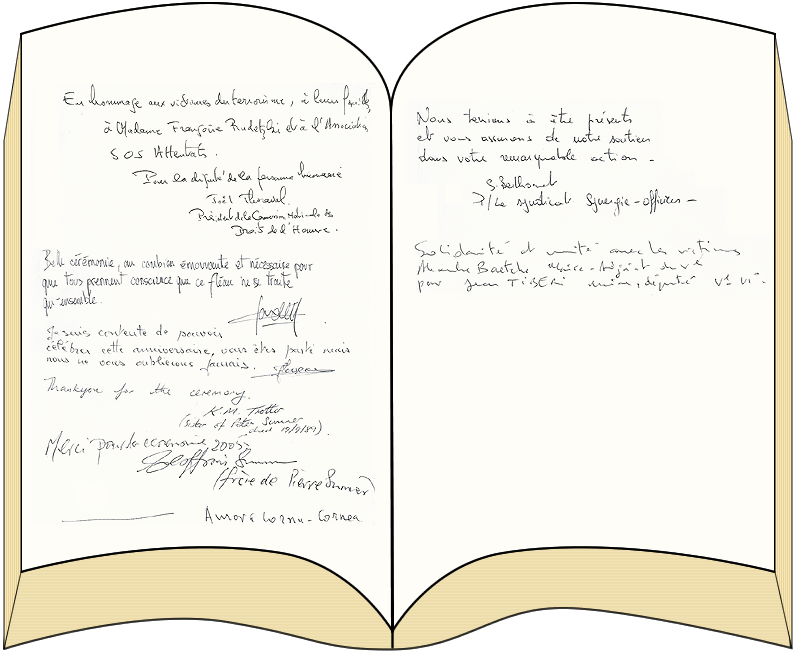 En hommage aux victimes du terrorisme, à leurs familles
à Madame Françoise Rudetzki et à l'Association
SOS Attentats.
Pour la députée de la
Président de la Commission Nationale des
Droits de l'Homme.
Belle cérémonie, au combien émouvante et nécessaire pour
que tous prennent conscience que ce fléau ne se traite
qu'ensemble.
Je suis contente de pouvoir
célébrer cette anniversaire, vous êtes parti mais
nous ne vous oublierons jamais.
Thankyou for the ceremony.
K.M. Trotter
(sister of Peter Sumner
died 19/9/89).
Merci pour la ceremonie 2005.
(frère de Pierre Sumner)
Aurora Cornu - Cornea
Nous tenions à être présents
et vous assurons de notre soutien
dans votre remarquable action -
P/Le syndicat Synergie-officiers -
Solidarité et unité avec les victimes
pour Jean TIBERI maire, député